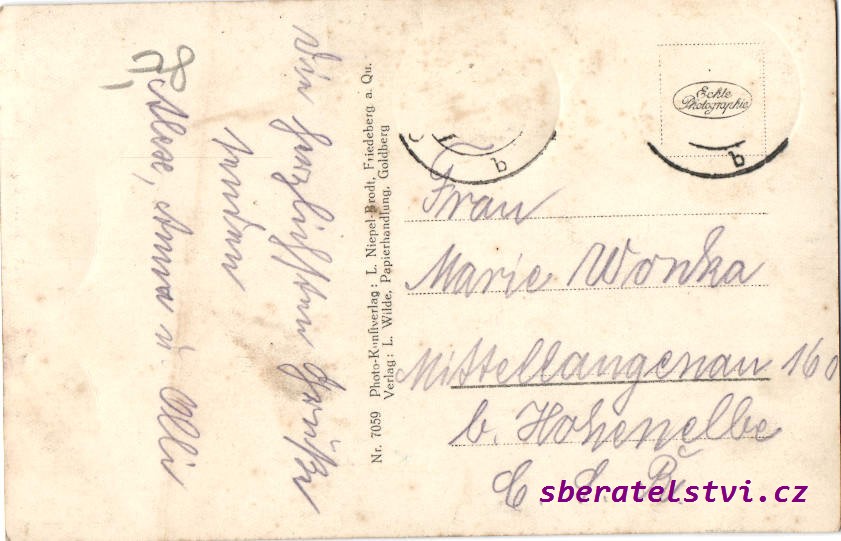 Die herzlichsten Grüße
senden
Alose, Anna u. Olli
Nr. 7059 Photo-Kunstverlag: L. Niepel-Brodt, Friedeberg a. Qu.
Verlag: L. Wilde, Papierhandlung, Goldberg
Echte
Photographie
b
b
Frau
Marie Wonka
Mittellangenau 160
b. Hohenelbe
Č. S. R.
sberatelstvi.cz